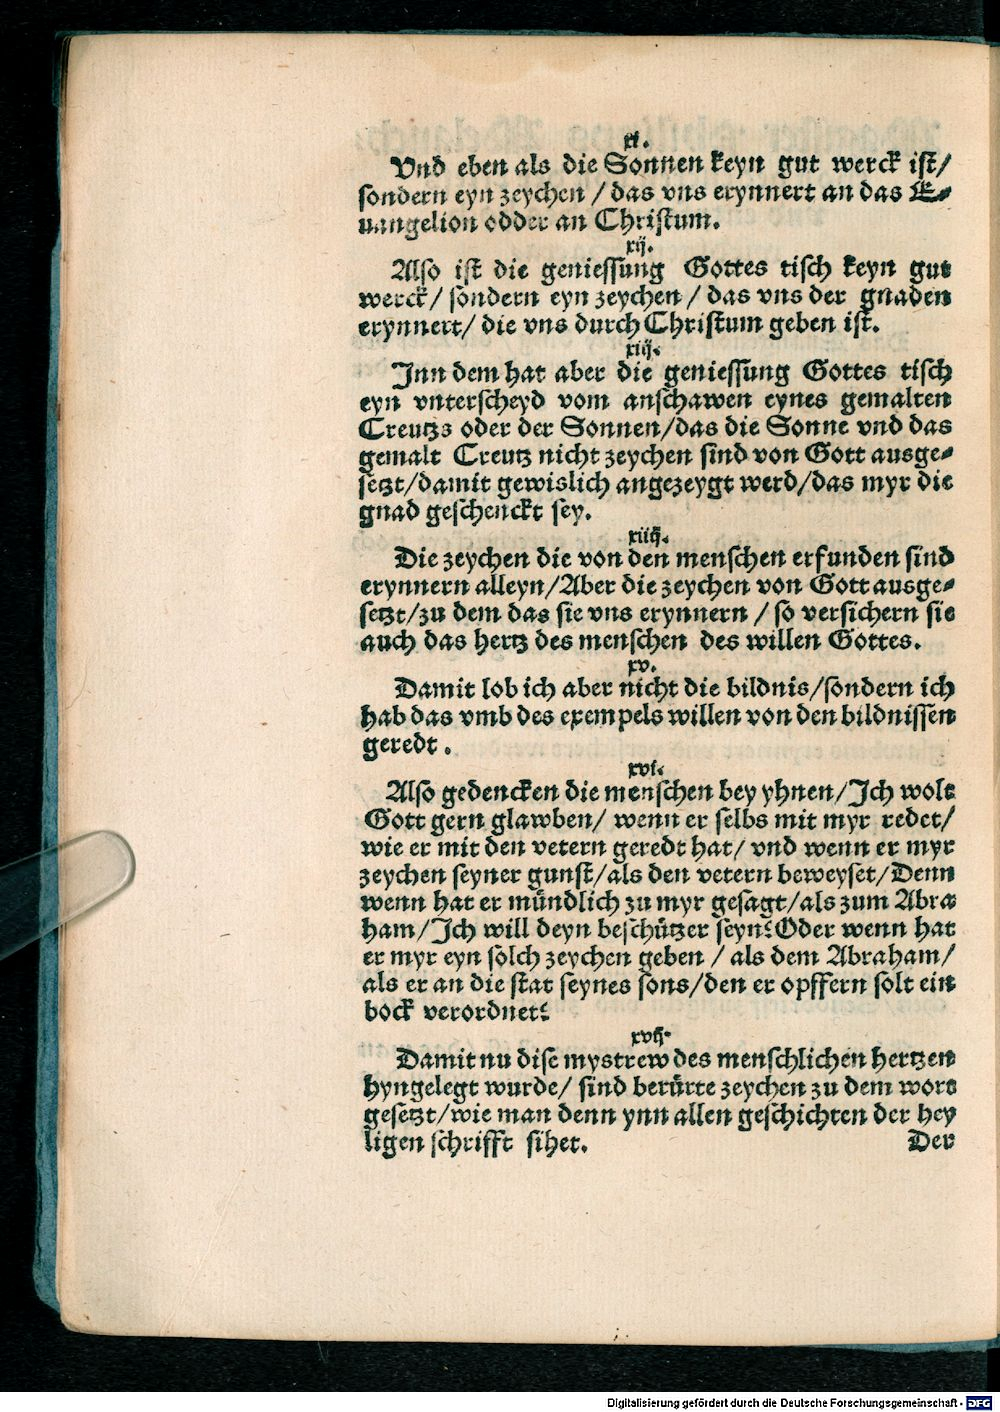 xi.
Vnd eben als die Sonnen keyn gut werck ist/
sondern eyn zeychen / das vns erynnert an das E⸗
uangelion odder an Christum.
xij.
Also ist die geniessung Gottes tisch keyn gut
werck/ sondern eyn zeychen / das vns der gnaden
erynnert/ die vns durch Christum geben ist.
xiij.
Inn dem hat aber die geniessung Gottes tisch
eyn vnterscheyd vom anschawen eynes gemalten
Creutzs oder der Sonnen/das die Sonne vnd das
gemalt Creutz nicht zeychen sind von Gott ausge⸗
setzt/damit gewislich angezeygt werd/das myr die
gnad geschenckt sey.
xiiij.
Die zeychen die von den menschen erfunden sind
erynnern alleyn/Aber die zeychen von Gott ausge⸗
setzt/zu dem das sie vns erynnern / so versichern sie
auch das hertz des menschen des willen Gottes.
xv.
Damit lob ich aber nicht die bildnis/sondern ich
hab das vmb des exempels willen von den bildnissen
geredt.
xvi.
Also gedencken die menschen bey yhnen/Ich wolt
Gott gern glawben/ wenn er selbs mit myr redet/
wie er mit den vetern geredt hat/ vnd wenn er myr
zeychen seyner gunst/als den vetern beweyset/Denn
wenn hat er mündlich zu myr gesagt/als zum Abra
ham/Ich will deyn beschützer seyn? Oder wenn hat
er myr eyn solch zeychen geben / als dem Abraham/
als er an die stat seynes sons/den er opffern solt ein
bock verordnet?
xvij.
Damit nu dise mystrew des menschlichen hertzen
hyngelegt wurde/ sind berürte zeychen zu dem wort
gesetzt/wie man denn ynn allen geschichten der hey
ligen schrifft sihet.
Der
Digitalisierung gefördert durch die Deutsche Forschungsgemeinschaft - DFG